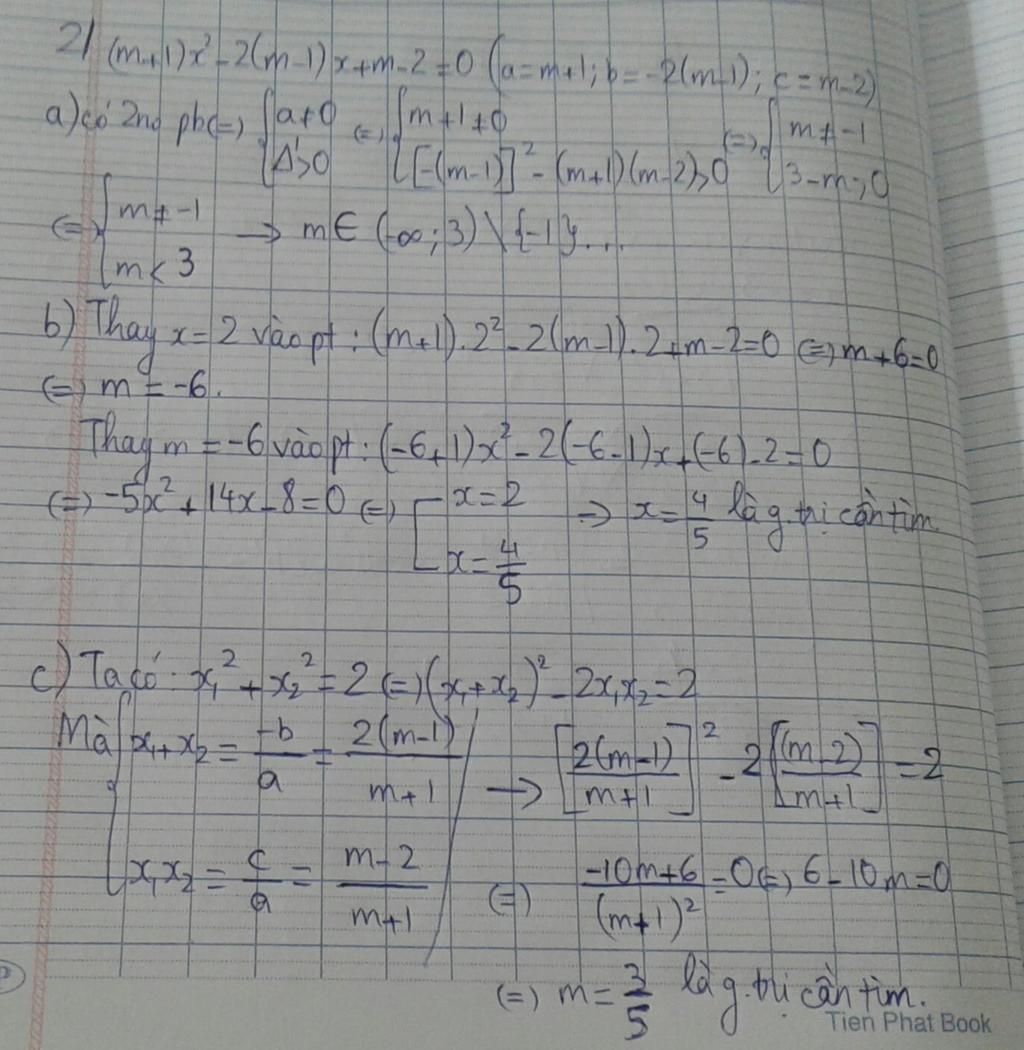 2/ (m+1)x² - 2(m-1)x + m - 2 = 0 (a = m+1; b = -2(m-1); c = m-2)
a) có 2no pb (=) { a ≠ 0 (=) { m+1 ≠ 0 (=) { m ≠ -1
{ Δ' > 0 { [-(m-1)]² - (m+1)(m-2) > 0 { 3-m > 0
(=) { m ≠ -1 → m ∈ (-∞; 3) \ {-1}...
{ m < 3
b) Thay x = 2 vào pt : (m+1).2² - 2(m-1).2 + m - 2 = 0 (=) m + 6 = 0
(=) m = -6.
Thay m = -6 vào pt : (-6+1)x² - 2(-6-1)x + (-6) - 2 = 0
(=) -5x² + 14x - 8 = 0 (=) [ x = 2 → x = 4/5 là g.trị cần tìm.
[ x = 4/5
c) Ta có : x₁² + x₂² = 2 (=) (x₁ + x₂)² - 2x₁x₂ = 2
Mà { x₁ + x₂ = -b/a = 2(m-1)/m+1 → [2(m-1)/m+1]² - 2[(m-2)/m+1] = 2
{ x₁x₂ = c/a = m-2/m+1 (=) -10m+6/(m+1)² = 0 (=) 6 - 10m = 0
(=) m = 3/5 là g.trị cần tìm.
Tien Phat Book